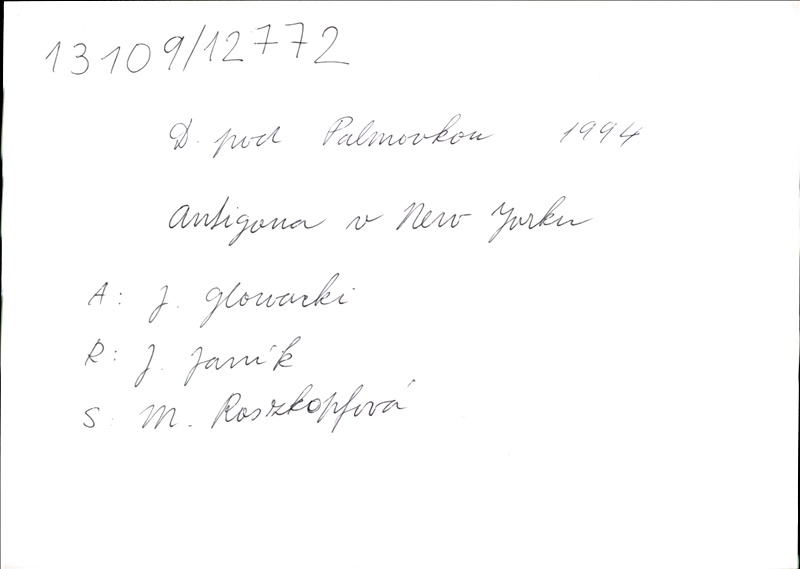 13109/12772
D. pod Palmovkou 1994
Antigona v New Yorku
A: J. Glowacki
R: J. Janík
S: M. Roszkopfová